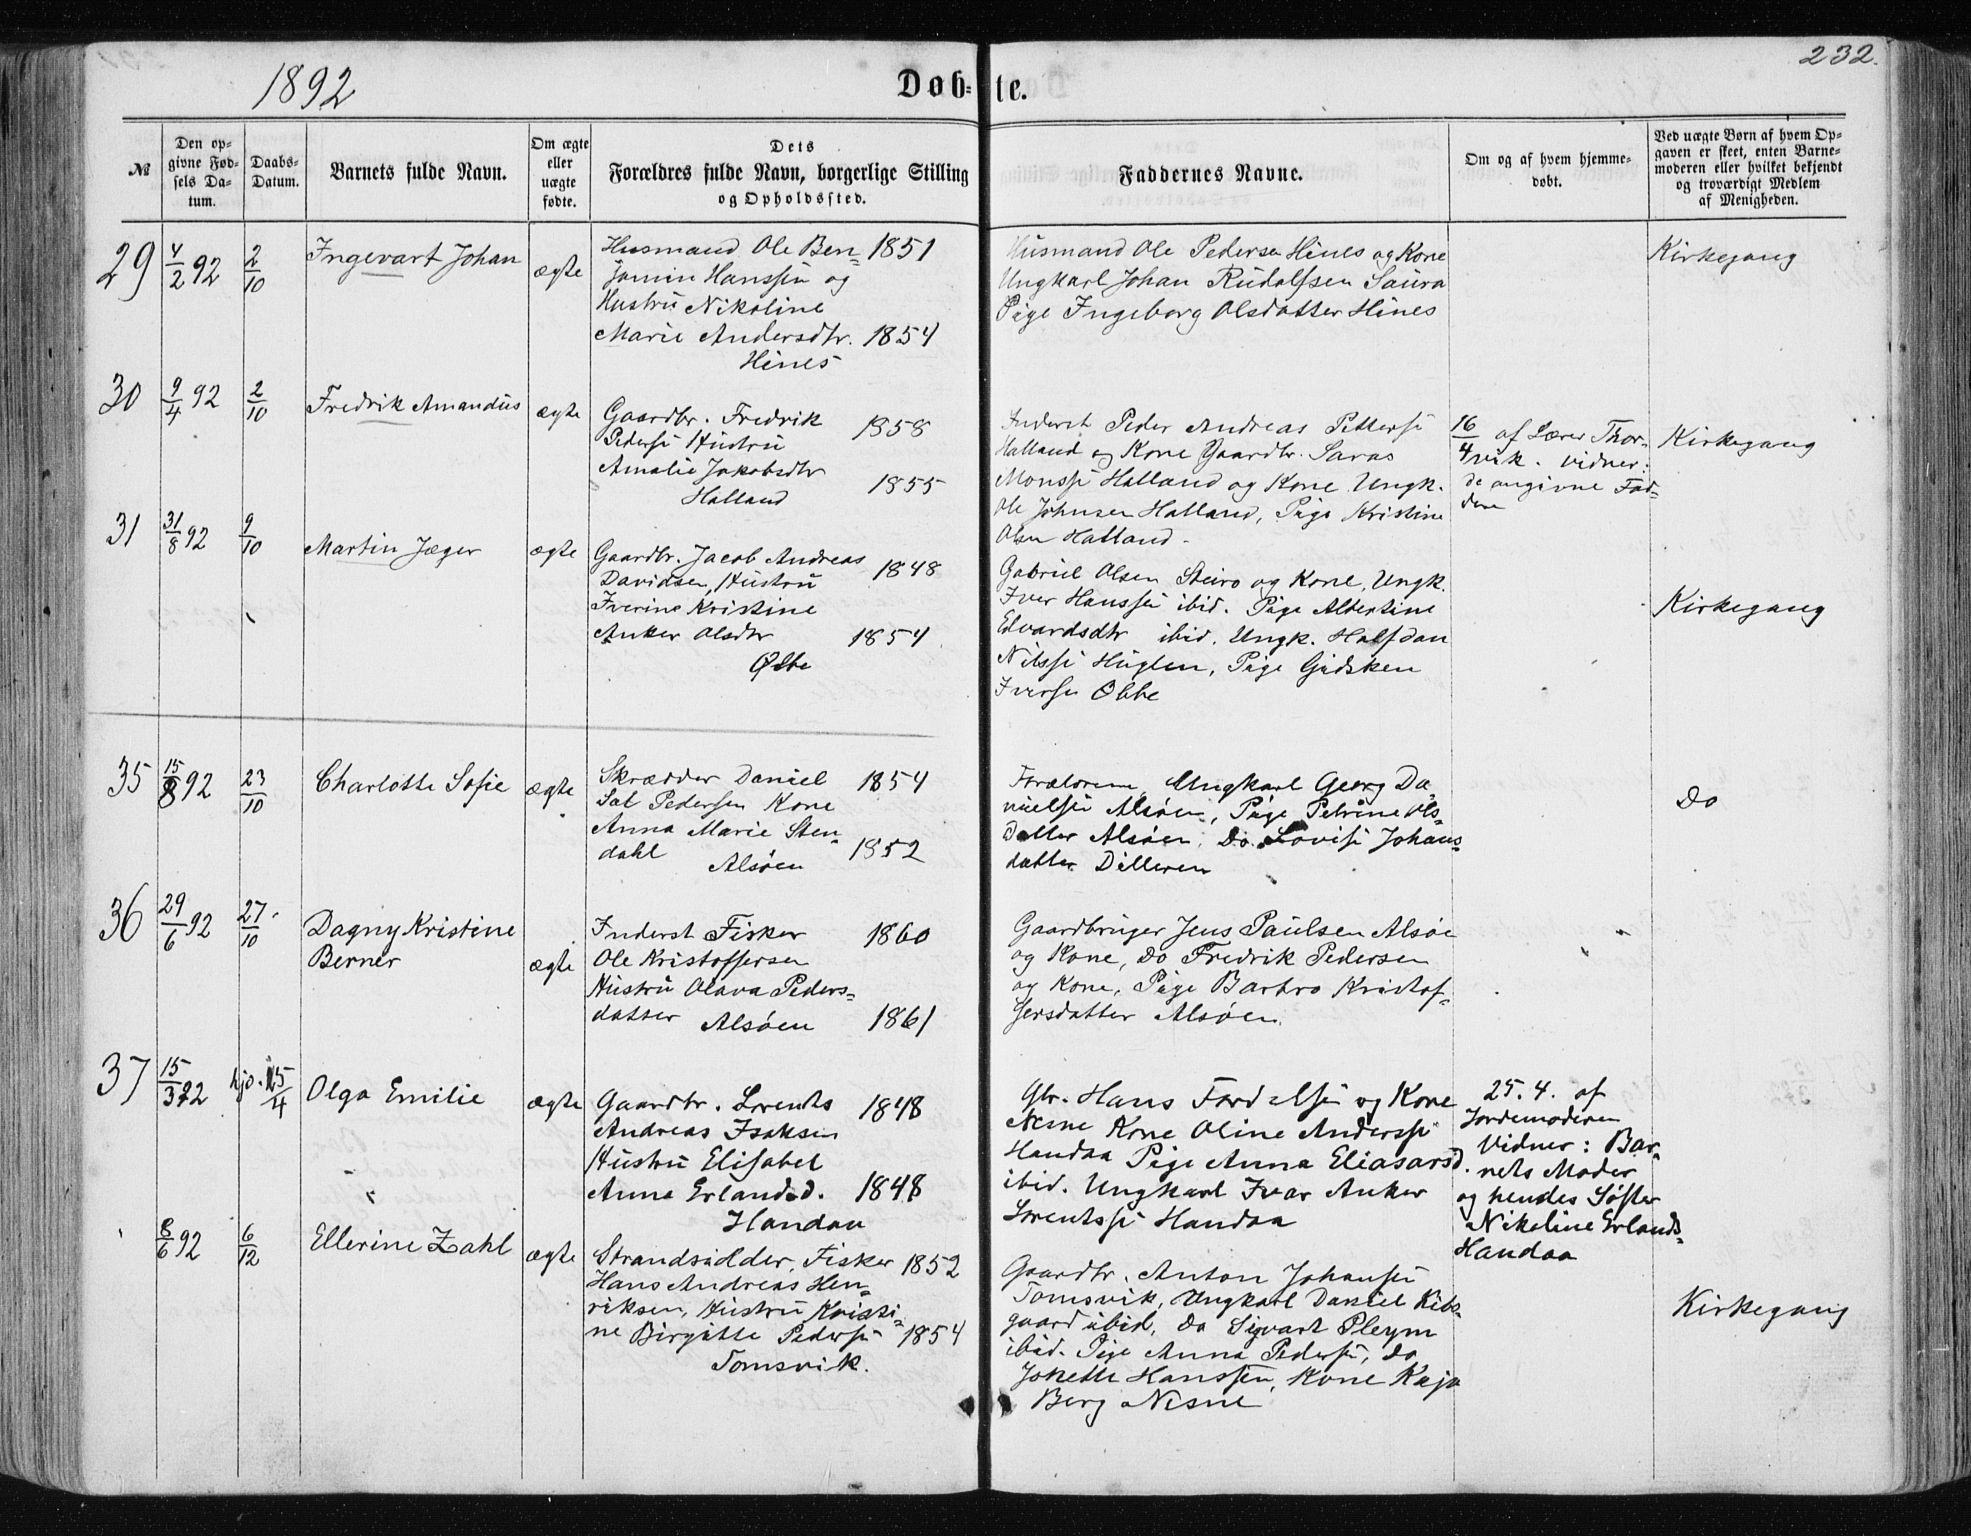 232.
1892
Døb-te.
№
Den opgivne Fødsels Datum.
Daabs-Datum.
Barnets fulde Navn.
Om ægte eller uægte fødte.
Dets Forældres fulde Navn, borgerlige Stilling og Opholdssted.
Faddernes Navne.
Om og af hvem hjemmedøbt.
Ved uægte Børn af hvem Opgaven er skeet, enten Barnemoderen eller hvilket bekjendt og troværdigt Medlem af Menigheden.
29 4/2 92 2/10 Ingevart Johan ægte
Husmand Ole Ben- 1851
jamin Hanssen og
Hustru Nikoline
Marie Andersdtr. 1854
Hines
Husmand Ole Pedersen Hines og Kone
Ungkarl Johan Rudolfsen Saura
Pige Ingeborg Olsdatter Hines
Kirkegang
30 9/4 92 2/10 Fredrik Amandus ægte
Gaardbr. Fredrik
Peders. Hustru 1858
Amalie Jakobsdtr
Halland 1855
Inderst Peder Andreas Petters.
Halland og Kone Gaardbr. Saras
Monss. Halland og Kone Ungk.
Ole Johnsen Halland, Pige Kristine
Olsen Halland
16/4 af Lærer Thor-
vik. Vidner:
de angivne Fad-
dere
Kirkegang
31 31/8 92 9/10 Martin Jæger ægte
Gaardbr. Jacob Andreas
Davidsen, Hustru 1848
Iverine Kristine
Anker Olsdtr 1854
Gabriel Olsen Steiro og Kone, Ungk.
Iver Hanssen ibid. Pige Albertine
Edvardsdtr ibid. Ungk. Halfdan
Nilss. Huglen, Pige Gidsken
Ivers.
Kirkegang
35 15/8 92 23/10 Charlotte Sofie ægte
Skrædder Daniel 1854
Sal Pedersen Kone
Anna Marie Sten-
dahl 1852
Alsøen
Forældrene, Ungkarl Georg Da-
nielsen Alsøen, Pige Petrine Ols-
datter Alsøen. Do. Lovise Johans-
datter Dilleren
Do
36 29/6 92 27/10 Dagny Kristine
Berner ægte
Inderst Fisker 1860
Ole Kristoffersen
Hustru Olava Peders-
datter Alsøen 1861
Gaardbruger Jens Paulsen Alsøe
og Kone, Do Fredrik Pedersen
og Kone, Pige Barbro Kristof-
fersdatter Alsøen.
37 15/3 92 hjd. 25/4 Olga Emilie ægte
Gaardbr. Lorents 1848
Andreas Isaksen
Hustru Elisabet
Anna Erlandsd. 1848
Handaa
Gbr. Hans og Kone
Nesne Kone Oline Anderss.
Handaa Pige Anna Eliasarsd.
ibid. Ungkarl Ivar Anker
Lorentss. Handaa
25. 4. af
Jordemoderen
Vidner: Bar-
nets Moder
og hendes Søster
Nikoline Erlands-
Handaa
8/6 92 6/12 Ellerine Zahl ægte
Strandsidder, Fisker 1852
Hans Andreas Hen-
riksen, Hustru Kristi-
ne Birgitte Peders. 1854
Tomsvik.
Gaardbr. Anton Johansen
Tomsvik, Ungkarl Daniel Kibs-
gaard ibid, do Sigvart Pleym
ibid. Pige Anna Peders., do
Jokette Hanssen, Kone Kaja
Berg Nesne
Kirkegang